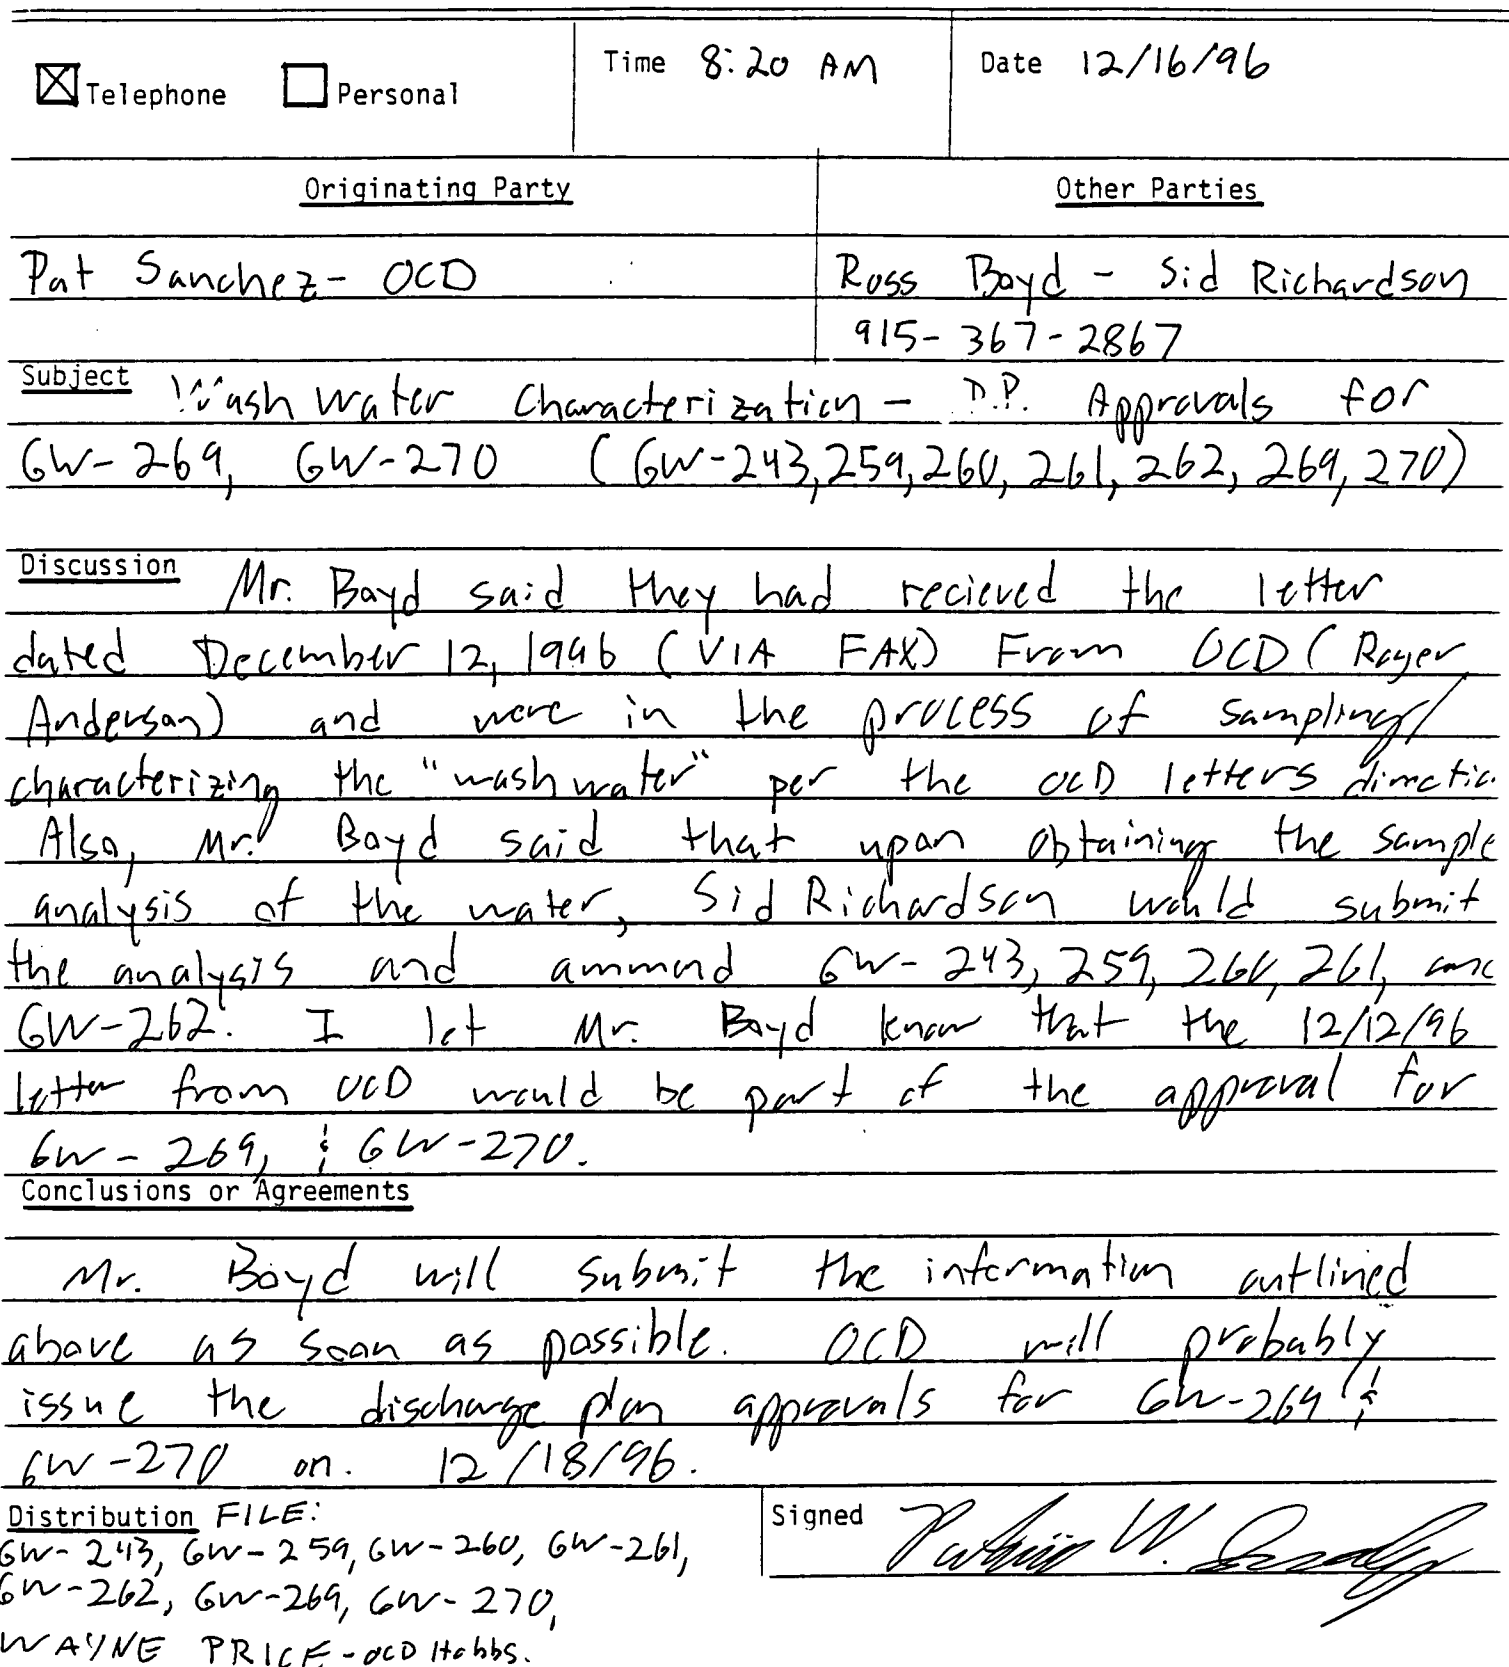 Telephone Personal Time 8:20 AM Date 12/16/96
Originating Party Other Parties
Pat Sanchez - OCD Ross Boyd - Sid Richardson
915-367-2867
Subject Wash Water Characterization - D.P. Approvals for
GW-269, GW-270 (GW-243,259,260,261,262,269,270)
Discussion Mr. Boyd said they had recieved the letter
dated December 12, 1996 (VIA FAX) From OCD (Roger
Anderson) and were in the process of sampling/
characterizing the "wash water" per the OCD letters directio
Also, Mr. Boyd said that upon obtaining the sample
analysis of the water, Sid Richardson would submit
the analysis and ammend GW-243, 259, 260, 261, and
GW-262. I let Mr. Boyd know that the 12/12/96
letter from OCD would be part of the approval for
GW-269, & GW-270.
Conclusions or Agreements
Mr. Boyd will submit the information outlined
above as soon as possible. OCD will probably
issue the discharge plan approvals for GW-269 &
GW-270 on. 12/18/96.
Distribution FILE: Signed Patricio W. Sanchez
GW-243, GW-259, GW-260, GW-261,
GW-262, GW-269, GW-270,
WAYNE PRICE-OCD Hobbs.